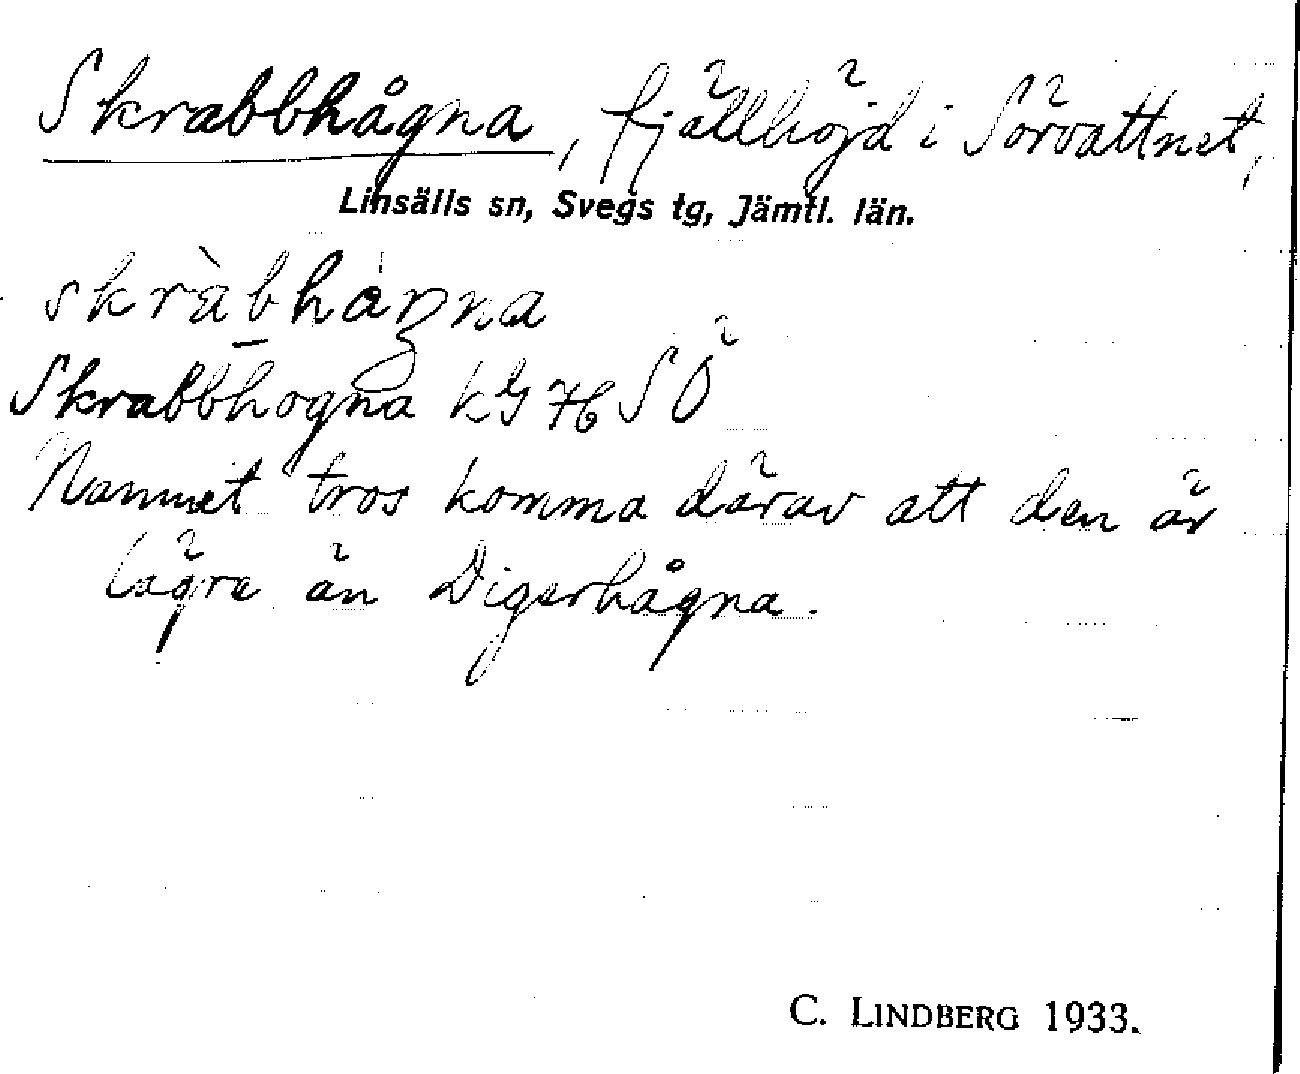 Skrabbhågna, fjällhöjd i Sörvattnet,
Linsälls sn, Svegs tg, Jämtl. län.
skràbhàgna
Skrabbhogna kG 76 SÖ
Namnet tros komma därav att den är
lägre än Digerhågna.
C. LINDBERG 1933.